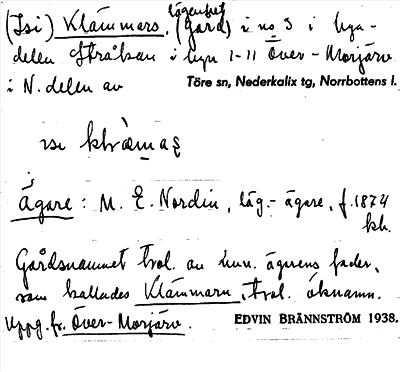 lägenhet
(Isi) Klämmars, (Gård) i no 3 i bya-
delen Stråkan i byn 1-11 Över-Morjärv
i N. delen av Töre sn, Nederkalix tg, Norrbottens l.
Ägare: M. E. Nordin, läg.-ägare, f. 1874
Gårdsnamnet trol. av nuv. ägarens fader,
som kallades Klämmarn, trol. öknamn.
Uppg. fr. Över-Morjärv. EDVIN BRÄNNSTRÖM 1938.